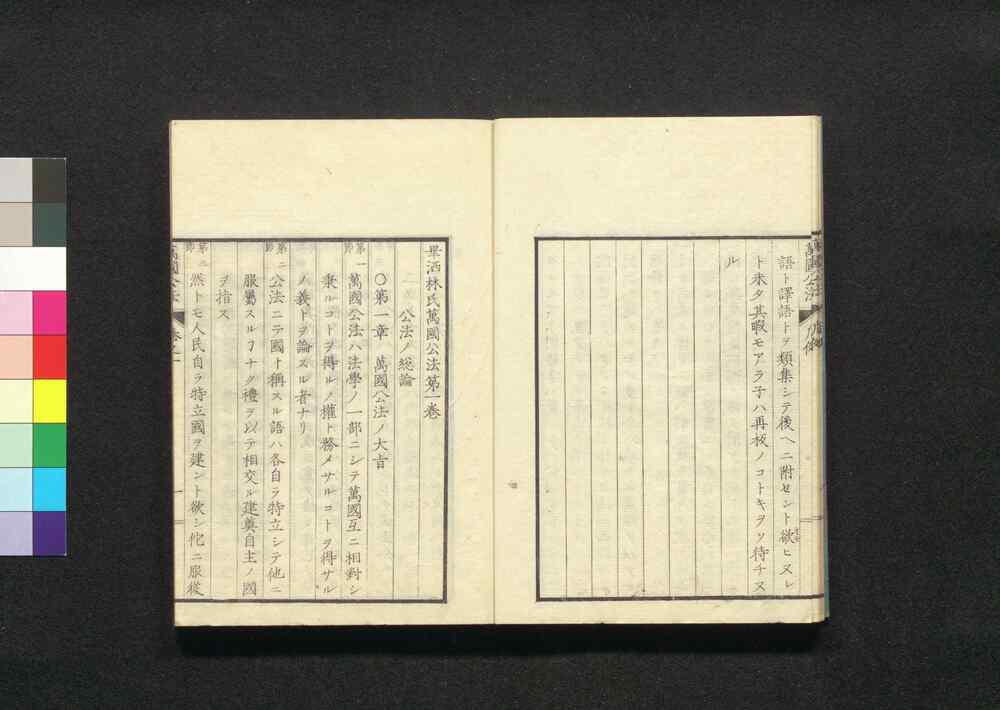 萬國公法
語ト譯語トヲ類集シテ後ヘニ附セント欲ヒヌレ
ト未タ其暇モアラ子ハ再板ノコトキヲソ待チヌ
ル
畢洒林氏萬國公法第一卷
公法ノ総論
〇第一章 萬國公法ノ大旨
第一節 萬國公法ハ法學ノ一部ニシテ萬國互ニ相對シ
秉ルコトヲ得ルノ權ト務メサルコトヲ得サル
ノ義トヲ論スル者ナリ
第二節 公法ニテ國ト稱スル語ハ各自ラ特立シテ他ニ
服屬スルヿナク禮ヲ以テ相交ル建奠自主ノ國
ヲ指ス
第三節 然トモ人民自ラ特立國ヲ建ント欲シ佗ニ服從
萬國公法